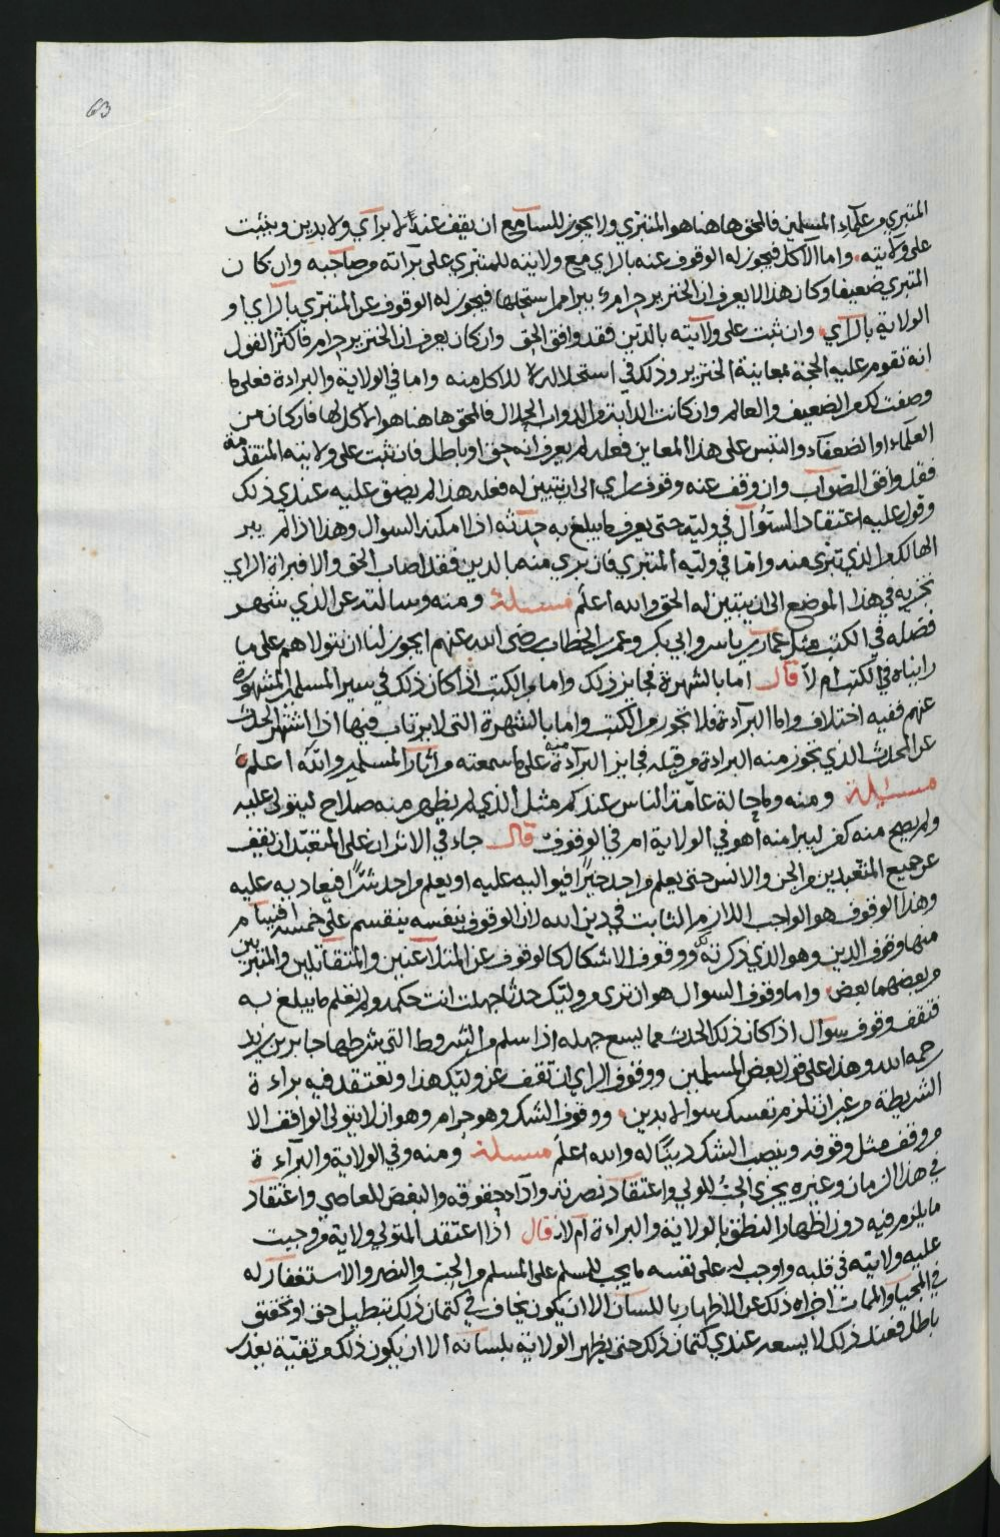 63
المتبري من علماء المسلمين فالمحق هاهنا هو المتبري ولا يجوز للسامع ان يقف عنه لا براي ولا بدين ويثبت
على ولايته واما الآكل فيجوز له الوقوف عنه بالراي مع ولايته للمتبري على برآته من صاحبه وان كان
المتبري ضعيفا وكان هذا لا يعرف ان الخنزير حرام يبرا من استحلها فيجوز له الوقوف عن المتبري بالراي او
الولاية بالراي وان ثبت على ولايته بالدين فقد وافق الحق وان كان يعرف ان الخنزير حرام فاكثر القول
انه تقوم عليه الحجة بمعاينة الخنزير وذلك في استحلاله للاكل منه واما في الولاية والبرادة فعلى ما
وصفت لك من الضعيف والعالم وان كانت الدابة من الدواب الحلال فالمحق هاهنا هو الآكل لها فان كان من
العلماء او الضعفاء والتبس على هذا المعاين فعله لم يعرف انه حق او باطل فان ثبت على ولايته المتقدمة
فقد وافق الصواب وان وقف عنه وقوف راي الى ان يتبين له فعله هذا لم يضق عليه عندي ذلك
وقول عليه اعتقاد السؤال في وليه حتى يعرف ما يبلغ به حدثه اذا امكنه السوال وهذا اذا لم يبر
الهالك من الذي تبرى منه واما في وليه المتبري فان بري منه بالدين فقد اصاب الحق والا فبراة الراي
تجزيه في هذا الموضع الى ان يتبين له الحق والله اعلم مسئلة ومنه وسالته عن الذي شهر
فضله في الكتب مثل عمار بن ياسر وابي بكر وعمر بن الخطاب رضي الله عنهم ايجوز لنا ان نتولاهم على ما
رايناه في الكتب ام لا قال اما بالشهرة فجايز ذلك واما من الكتب اذا كان ذلك في سير المسلمين المشهورة
عنهم ففيه اختلاف واما البرآءة فلا تجوز من الكتب واما بالشهرة التي لا يرتاب فيها اذا اشتهر الحدث
عن المحدث الذي تجوز منه البرادة من قبله فجايز البرآءة منه على ما سمعته من آثار المسلمين والله اعلم
مسئلة ومنه وما حالة عامة الناس عندكم مثل الذي لم يظهر منه صلاح ليتولى عليه
ولم يصح منه كفر ليبرا منه اهو في الولاية ام في الوقوف قال جاء في الاثر ان على المتعبد ان يقف
عن جميع المتعبدين من الجن والانس حتى يعلم من احد خيرا فيواليه عليه او يعلم من احد شرا فيعاديه عليه
وهذا الوقوف هو الواجب اللازم الثابت في دين الله لان الوقوف بنفسه ينقسم على خمسة اقسام
منها وقوف الدين وهو الذي ذكرته لك ووقوف الاشكال كالوقوف عن المتلاعنين والمتقاتلين والمتبريين
من بعضهما بعض واما وقوف السوال هو ان ترى من وليك حدثا جهلت انت حكمه ولم تعلم ما يبلغ به
فتقف وقوف سوال اذا كان ذلك الحدث مما يسع جهله اذا سلم من الشروط التي شرطها جابر بن زيد
رحمه الله وهذا على قول بعض المسلمين ووقوف الراي ان تقف عن وليك هذا وتعتقد فيه براءة
الشريطة من غير ان تلزم نفسك سوالا بدين ووقوف الشك وهو حرام وهو ان لا يتولى الواقف الا
من وقف مثل وقوفه وينصب الشك دينا له والله اعلم مسئلة ومنه وفي الولاية والبراءة
في هذا الزمان وغيره يجزي الحب للولي واعتقاد نصرته واداء حقوقه والبغض للعاصي واعتقاد
ما يلزم فيه دون اظهار النطق بالولاية والبراءة ام لا قال اذا اعتقد المتولي ولاية من وجبت
عليه ولايته في قلبه واوجب له على نفسه ما يجب للمسلم على المسلم من الحب والنصر والاستغفار له
في المحيا والممات اجزاه ذلك عن الاظهار باللسان الا ان يكون يخاف في كتمان ذلك تبطيل حق او تحقيق
باطل فعند ذلك لا يسعه عندي كتمان ذلك حتى يظهر الولاية بلسانه الا ان يكون ذلك من تقية يعذر